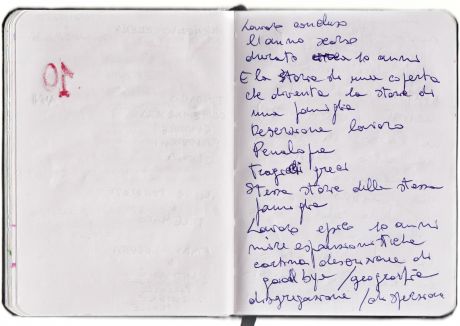 10
Lavoro concluso
l'anno scorso
durato 10 anni
E la storia di una coperta
che diventa la storia di
una famiglia
Descrizione lavoro
Penelope
tragedi greci
Stessa storia della stessa
famiglia
Lavoro epico 10 anni
mire espansionistiche
cortina/descrizione di
goodbye/geografia
disgregazione/dispersione